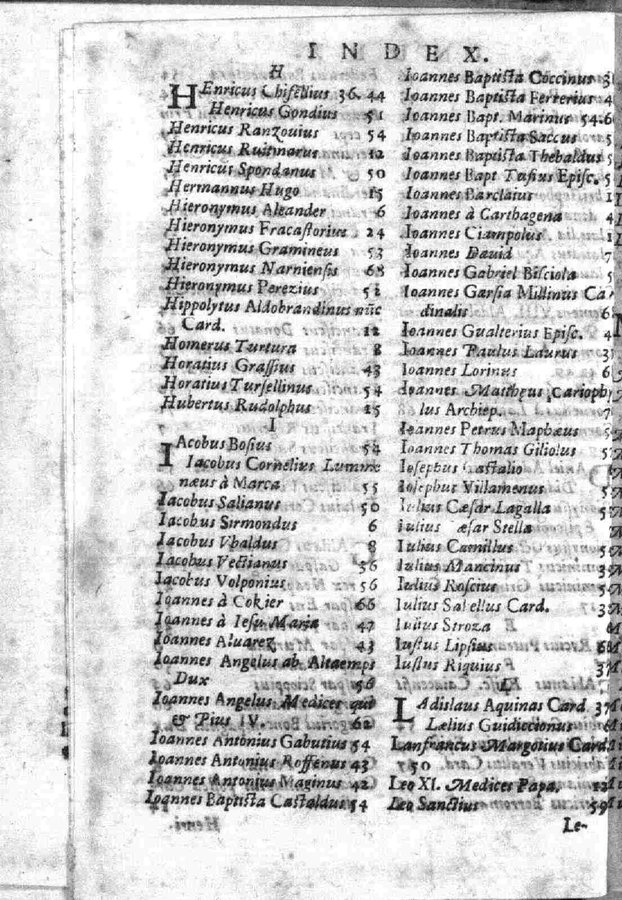 INDEX.
H
HEnricus Chifellius 36. 44
Henricus Gondius 51
Henricus Ranzouius 54
Henricus Ruitinarus 12
Henricus Spondanus 50
Hermannus Hugo 15
Hieronymus Aleander 6
Hieronymus Fracastorius 24
Hieronymus Gramineus 53
Hieronymus Narniensis 68
Hieronymus Perezius 51
Hippolytus Aldobrandinus nūc
Card. 12
Homerus Turtura 8
Horatius Grassius 43
Horatius Tursellinus 54
Hubertus Rudolphus 15
I
IAcobus Bosius 54
Iacobus Cornelius Lummæ
næus à Marca 55
Iacobus Salianus 50
Iacobus Sirmondus 6
Iacobus Vbaldus 8
Iacobus Vectianus 36
Iacobus Volponius 56
Ioannes à Cokier 66
Ioannes à Iesu Maria 47
Ioannes Aluarez 43
Ioannes Angelus ab Altaemps
Dux 56
Ioannes Angelus Medices qui
& Pius IV. 62
Ioannes Antonius Gabutius 54
Ioannes Antonius Roffenus 43
Ioannes Antonius Maginus 42
Ioannes Baptista Castaldus 54
Henri
Ioannes Baptista Coccinus 3
Ioannes Baptista Ferrerius 4
Ioannes Bapt. Marinus 54.6
Ioannes Baptista Saccus 5
Ioannes Baptista Thebaldus 5
Ioannes Bapt Tufius Episc. 5
Ioannes Barclaius 1
Ioannes à Carthagena 4
Ioannes Ciampolus 1
Ioannes Dauid 7
Ioannes Gabriel Bisciola 5
Ioannes Garsia Millinus Car
dinalis 6
Ioannes Gualterius Episc. 4
Ioannes Paulus Laurus 3
Ioannes Lorinus 6
Ioannes Mattheus Carioph
lus Archiep. 7
Ioannes Petrus Maphæus 5
Ioannes Thomas Giliolus 5
Iosephus Castalio
Iosephus Villamenus 5
Iulius Cæsar Lagalla 5
Iulius æsar Stella
Iulius Camillus 5
Iulius Mancinus 3
Iulius Roscius 5
Iulius Sabellus Card. 3
Iulius Stroza 6
Iustus Lipsius 6
Iustus Riquius 3
L
LAdislaus Aquinas Card 37
Lælius Guidiccionus 6
Lanfrancus Margotius Card.
50
Leo XI. Medices Papa. 12
Leo Sanctius 59
Le-